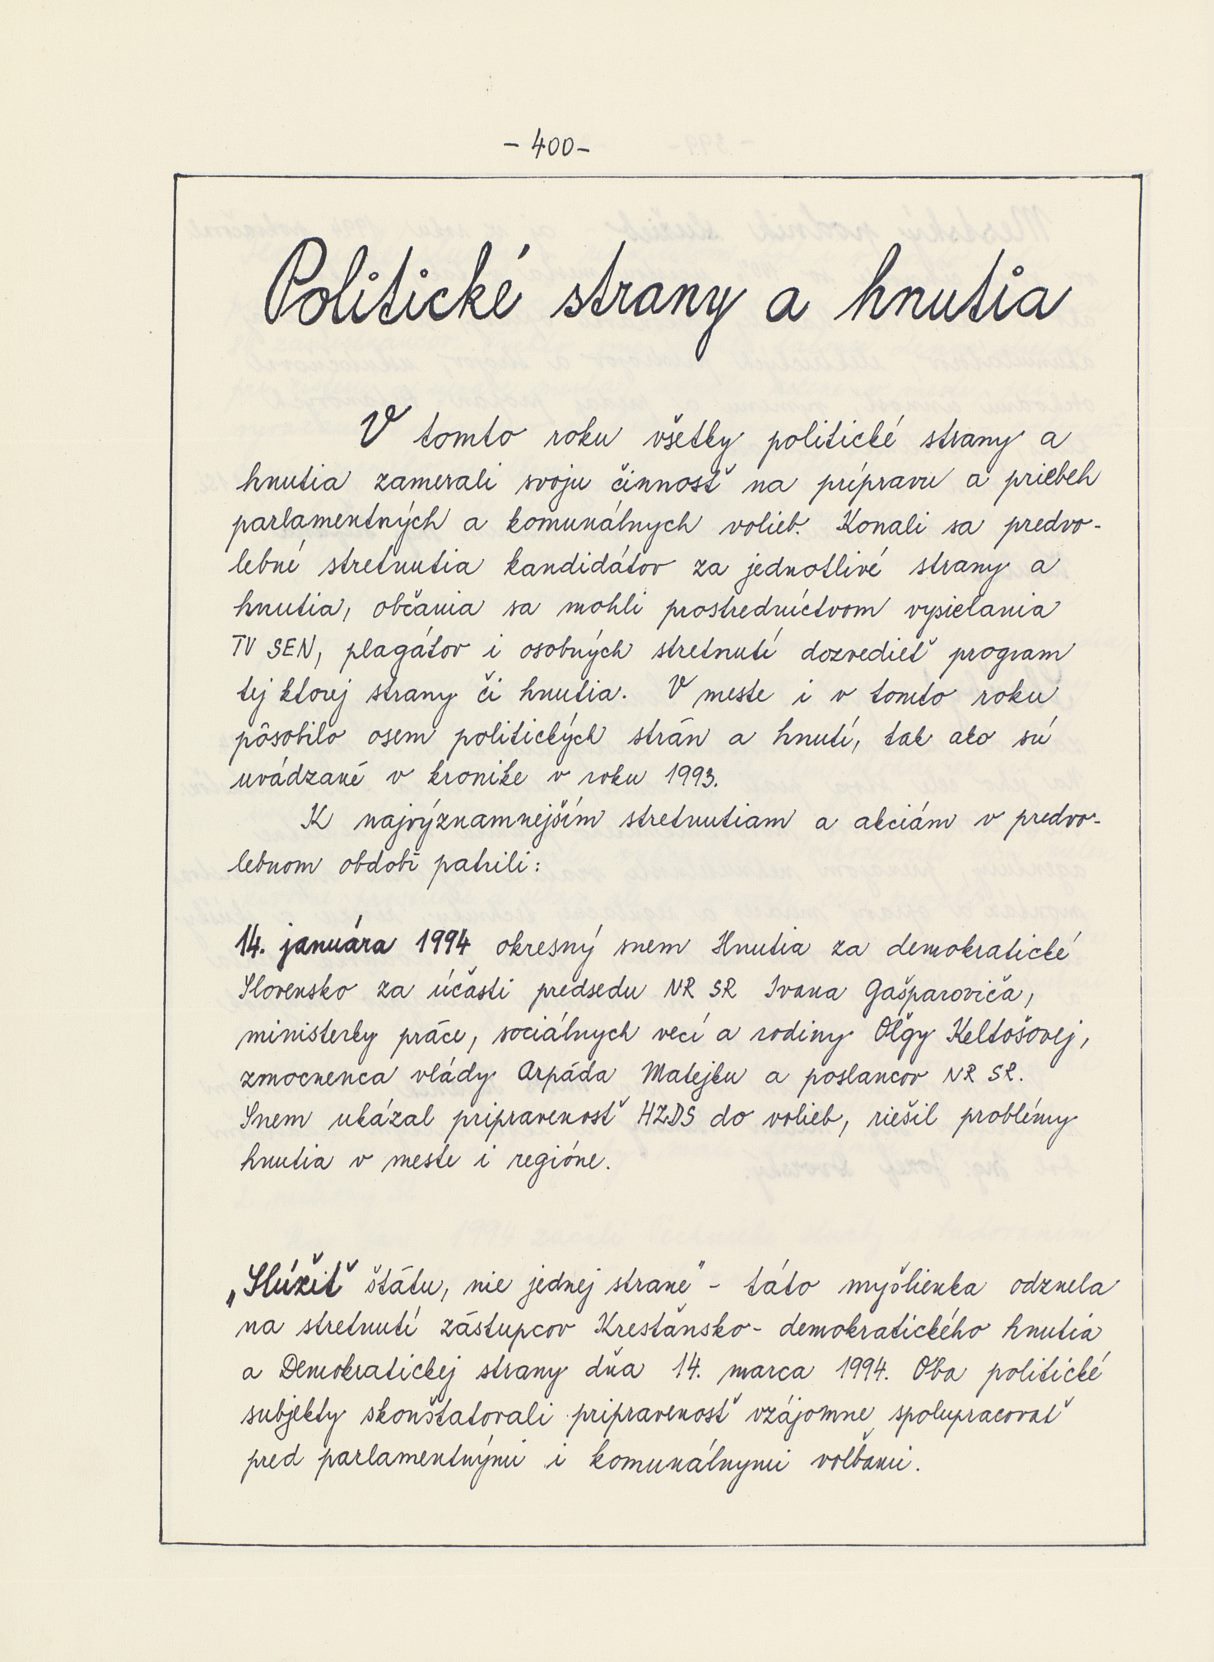 - 400 -
Politické strany a hnutia
V tomto roku všetky politické strany a
hnutia zamerali svoju činnosť na prípravu a priebeh
parlamentných a komunálnych volieb. Konali sa predvo-
lebné stretnutia kandidátov za jednotlivé strany a
hnutia, občania sa mohli prostredníctvom vysielania
TV SEN, plagátov i osobných stretnutí dozvedieť program
tej ktorej strany či hnutia. V meste i v tomto roku
pôsobilo osem politických strán a hnutí, tak ako sú
uvádzané v kronike v roku 1993.
K najvýznamnejším stretnutiam a akciám v predvo-
lebnom období patrili:
14. januára 1994 okresný snem Hnutia za demokratické
Slovensko za účasti predsedu NR SR Ivana Gašparoviča,
ministerky práce, sociálnych vecí a rodiny Oľgy Keltošovej,
zmocnenca vlády Arpáda Matejku a poslancov NR SR.
Snem ukázal pripravenosť HZDS do volieb, riešil problémy
hnutia v meste i regióne.
„Slúžiť štátu, nie jednej strane" - táto myšlienka odznela
na stretnutí zástupcov Kresťansko- demokratického hnutia
a Demokratickej strany dňa 14. marca 1994. Oba politické
subjekty skonštatovali pripravenosť vzájomne spolupracovať
pred parlamentnými i komunálnymi voľbami.